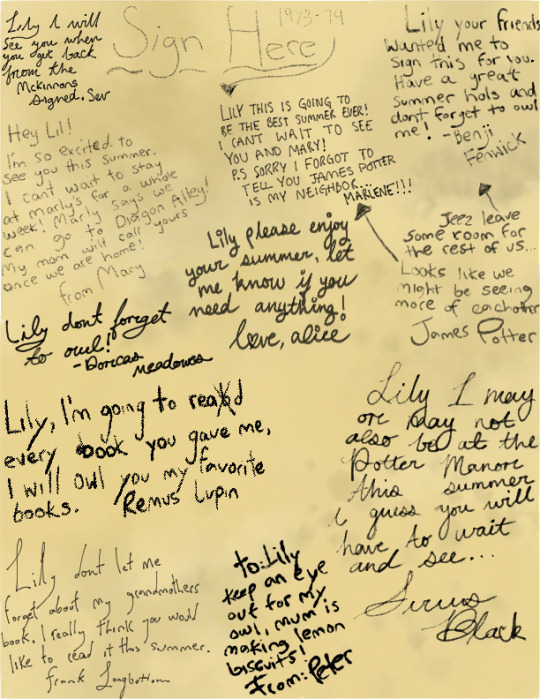 1973-74
Sign
Here
Lily I will
See you when
you get back
from the
Mckinnons
signed, Sev
LILY THIS IS GOING TO
BE THE BEST SUMMER EVER!
I CANT WAIT TO SEE
YOU AND MARY!
P.S SORRY I FORGOT TO
TELL YOU JAMES POTTER
IS MY NEIGHBOR...
MARLENE!!!
Lily your friends
wanted me to
sign this for you.
Have a great
summer hols and
dont forget to owl
me! -Benji
Fenwick
Hey Lil!
I'm so excited to
see you this summer.
I cant wait to stay
at Marly's for a whole
week! Marly says we
can go to Diagon Alley!
My mom will call yours
once we are home!
from Mary
Jeez leave
some room for
the rest of us...
Looks like we
might be seeing
more of eachother
James Potter
Lily please enjoy
your summer, let
me know if you
need anything!
love, alice
Lily dont forget
to owl!
-Dorcas meadowes
Lily, I'm going to read
every book you gave me,
I will owl you my favorite
books. Remus Lupin
Lily I may
or may not
also be at the
Potter Manor
this summer
i guess you will
have to wait
and see...
Sirius
Black
Lily dont let me
forget about my grandmothers
book. I really think you would
like to read it this summer.
frank Longbottom
to: Lily
keep an eye
out for my
owl, mum is
making lemon
biscuits!
From: Peter